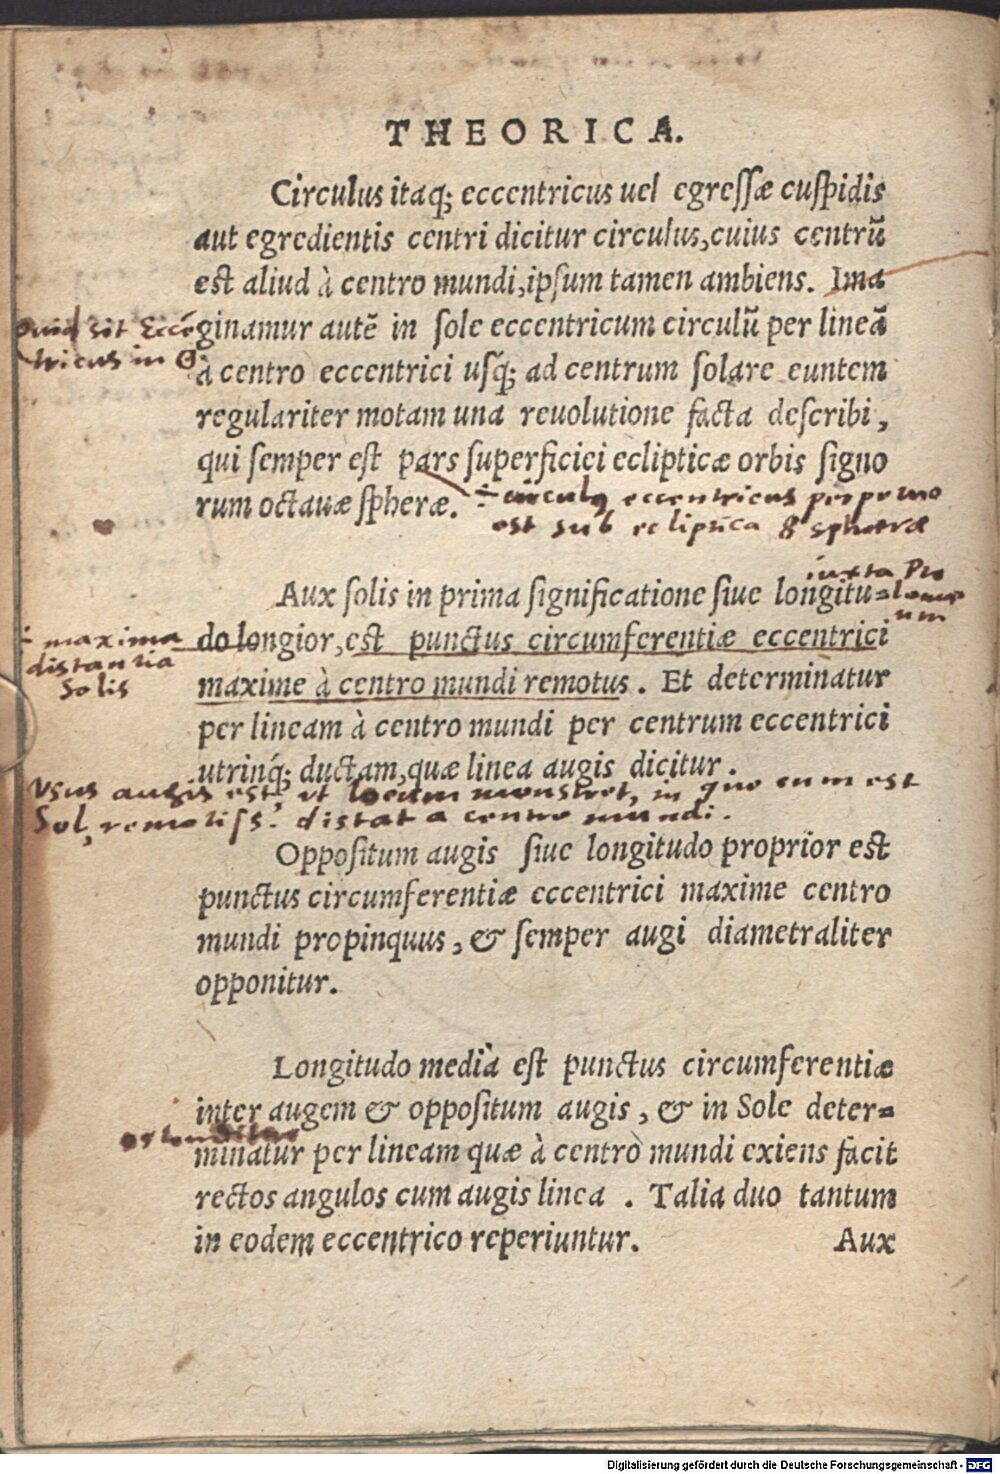 THEORICA.
Circulus itaq; eccentricus uel egressæ cuspidis
aut egredientis centri dicitur circulus, cuius centrũ
est aliud à centro mundi, ipsum tamen ambiens. Ima
Quid sit Eccẽ
tricus in ☉
ginamur autẽ in sole eccentricum circulũ per lineã
à centro eccentrici usq́; ad centrum solare euntem
regulariter motam una reuolutione facta describi,
qui semper est pars superficiei eclipticæ orbis signo
rum octauæ spheræ.
circulus eccentricus perpetuo
est sub ecliptica 8 sphæræ
iuxta Pto
lomæ
um
Aux solis in prima significatione siue longitu=
do longior, est punctus circumferentiæ eccentrici
maxima
distantia
Solis
maxime à centro mundi remotus. Et determinatur
per lineam à centro mundi per centrum eccentrici
utrinq́; ductam, quæ linea augis dicitur.
Vsus augis est, ut locum monstret, in quo cum est
Sol, remotiss: distat a centro mundi.
Oppositum augis siue longitudo proprior est
punctus circumferentiæ eccentrici maxime centro
mundi propinquus, & semper augi diametraliter
opponitur.
Longitudo media est punctus circumferentiæ
inter augem & oppositum augis, & in Sole deter=
ostenditur
minatur per lineam quæ à centro mundi exiens facit
rectos angulos cum augis linea. Talia duo tantum
in eodem eccentrico reperiuntur.
Aux
Digitalisierung gefördert durch die Deutsche Forschungsgemeinschaft - DFG